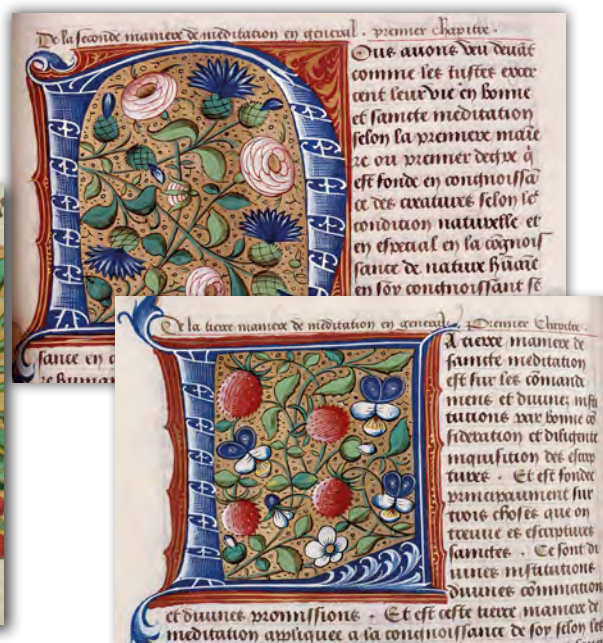 De la seconde maniere de meditation en general . premier chapitre .
Ous auons veu deuāt
comme les iustes exer
cent leur vie en bonne
et saincte meditation
selon la premiere manie
re ou premier degre q̄
est fonde en congnoissā
ce des creatures selon le᷒
condition naturelle et
en especial en la cognois
sance de nature hūaīe
en soy congnoissant se
sance en
re humai
De la tierce maniere de meditation en general . Premier Chapitre .
A tierce maniere de
saincte meditation
est sur les cōmande
mens et diuines insti
tutions par bonne cō
sideration et diligente
inquisition des escrip
tures . Et est fondee
principaument sur
trois choses que on
treuue es escriptures
sainctes . Ce sont di
uines institutions
diuines commination
et diuines promissions . Et est ceste tierce maniere de
meditation appliquee a la congnoissance de soy selon les